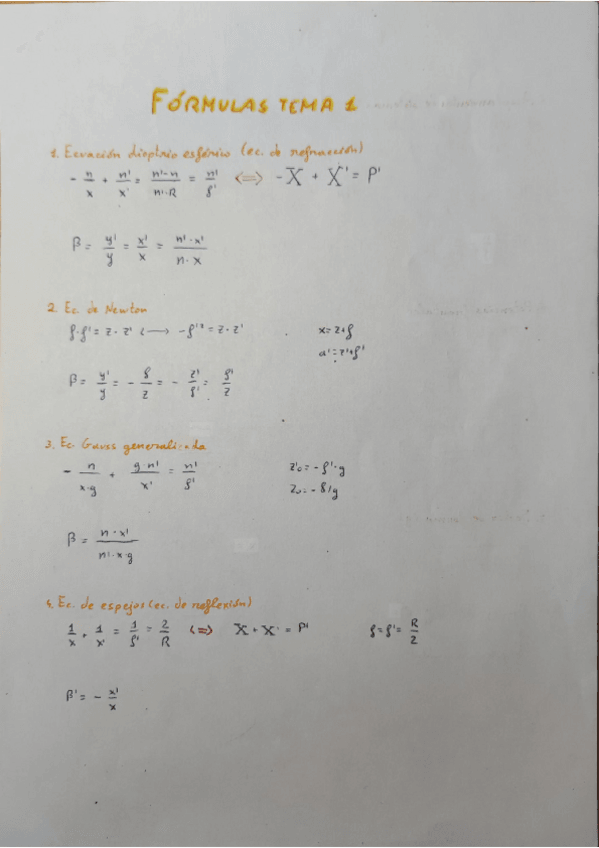 FÓRMULAS TEMA 1
1. Ecuación dioptrio esférico (ec. de refracción)
- n/x + n'/x' = n'-n/n'·R = n'/f' <=> -X + X' = P'
β = y'/y = x'/x = n'·x'/n·x
2. Ec. de Newton
f·f' = z·z' <-> -f'² = z·z' x=z+f
a'=z'+f'
β = y'/y = - f/z = - z'/f' = f'/z
3. Ec. Gauss generalizada
- n/x·g + g·n'/x' = n'/f' z'₀ = -f'·g
z₀ = -f/g
β = n·x'/n'·x·g
4. Ec. de espejos (ec. de reflexión)
1/x + 1/x' = 1/f' = 2/R <=> X + X' = P' f=f'= R/2
β' = - x'/x